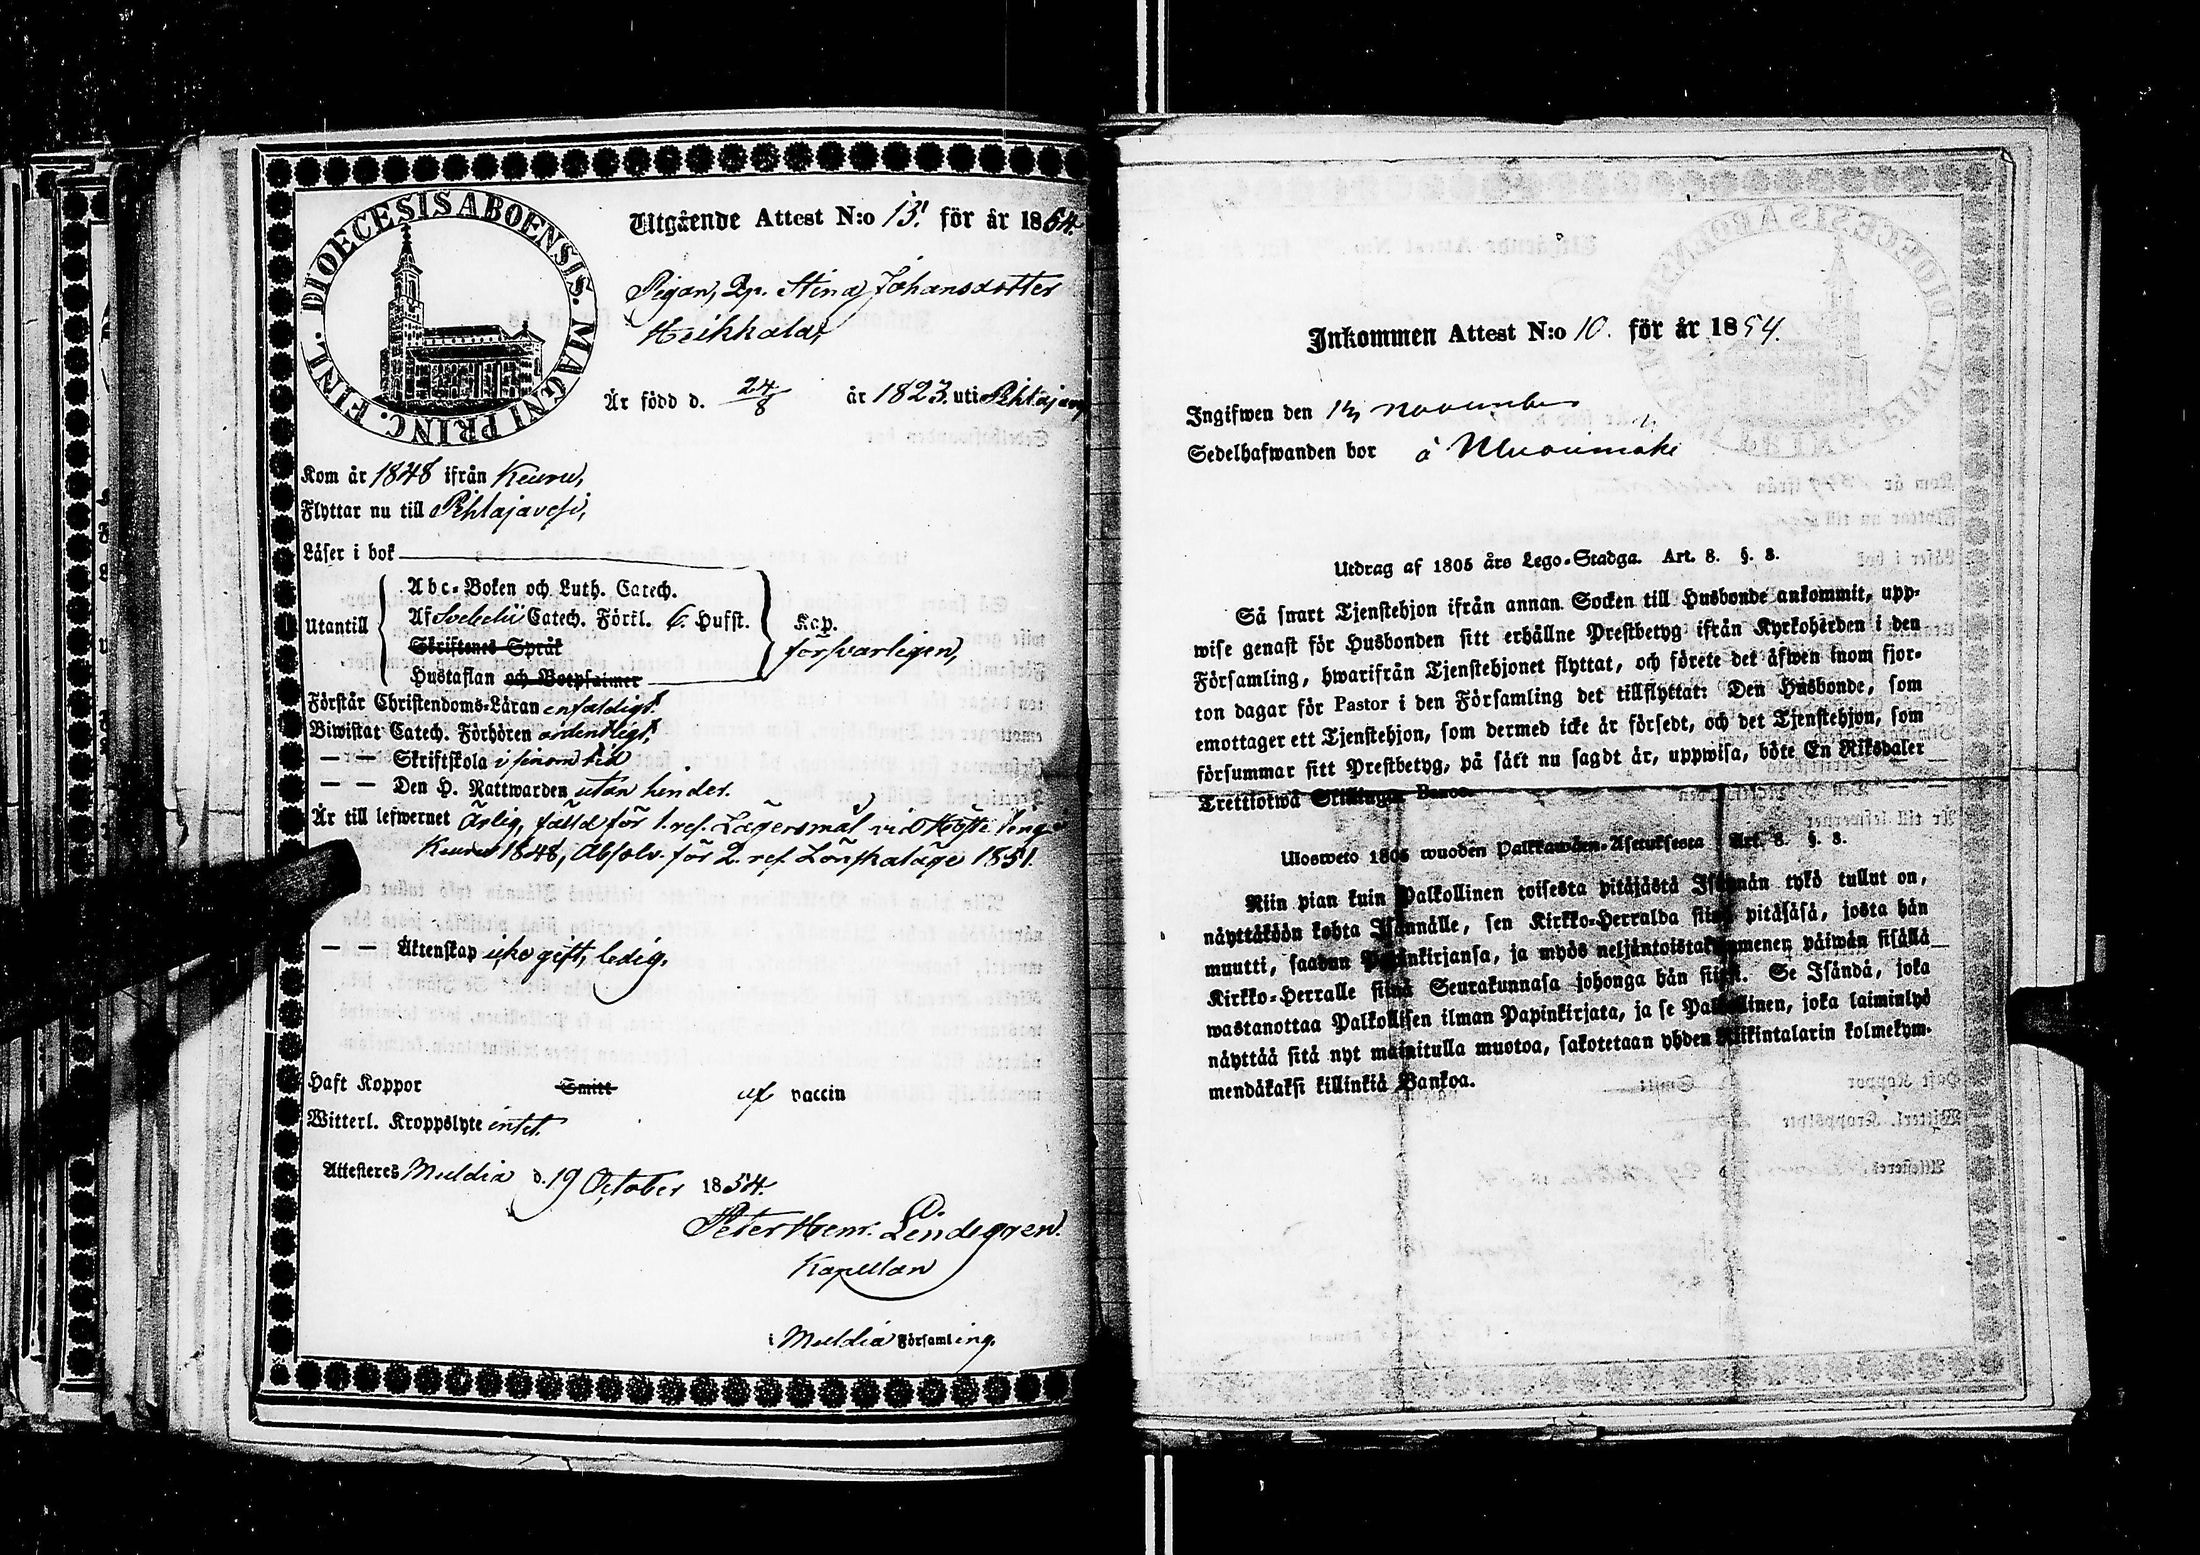 DIOECESIS ABOENSIS. MAGNI PRINC. FINL.
Utgående Attest N:o 13. för år 1854.
Pigan, Qp. Stina Johansdotter
Heikkala,
Är född d. 24/8 år 1823. uti Pihlajav
Kom år 1848 ifrån Keuru,
Flyttar nu till Pihlajavesi,
Läser i bok
Utantill
Abc-Boken och Luth. Catech.
Af Svebelii Catech. Förkl. 6. Hufst.
Skriftenes Språk
Hustaflan och Botpsalmer
Kap.
försvarligen,
Förstår Christendoms-Läran enfaldigt.
Biwistat Catech. Förhören ordentligt,
— — Skriftskola i sinom tid
— — Den H. Nattwarden utan hinder.
Är till lefwernet Ärlig, fälld för 1. res. Lägersmål vid Höste ting
Keuru 1848, Absolv. för 2. res. Lönskaläge 1851.
— — Äktenskap icke gift, ledig.
Haft Koppor Smitt af vaccin
Witterl. Kroppslyte intet.
Attesteres Muldia d. 19 October 1854.
Peter Henr. Lindegren.
Kapellan
i Muldia Församling.
Inkommen Attest N:o 10. för år 1854.
Ingifwen den 13 november
Sedelhafwanden bor å
Utdrag af 1805 års Lego-Stadga. Art. 8. §. 8.
Så snart Tjenstehjon ifrån annan Socken till Husbonde ankommit, upp-
wise genast för Husbonden sitt erhållne Prestbetyg ifrån Kyrkoherden i den
Församling, hwarifrån Tjenstehjonet flyttat, och förete det äfwen inom fjor-
ton dagar för Pastor i den Församling det tillflyttat: Den Husbonde, som
emottager ett Tjenstehjon, som dermed icke är försedt, och det Tjenstehjon, som
försummar sitt Prestbetyg, på sätt nu sagdt är, uppwisa, böte En Riksdaler
Trettiotwå Skillingar Banco.
Ulosweto 1805 wuoden Palkkawäen-Asetuksesta Art. 8. §. 8.
Niin pian kuin Palkollinen toisesta pitäjästä Isännän tykö tullut on,
näyttäköön kohta Isännälle, sen Kirkko-Herralda siinä pitäjäsä, josta hän
muutti, saadun Papinkirjansa, ja myös neljäntoistakymmenen päiwän sisällä
Kirkko-Herralle siinä Seurakunnasa johonga hän siirsi. Se Isändä, joka
wastanottaa Palkollisen ilman Papinkirjata, ja se Palkollinen, joka laiminlyö
näyttää sitä nyt mainitulla muotoa, sakotetaan yhden Riikintalarin kolmekym-
mendäkaksi killinkiä Bankoa.